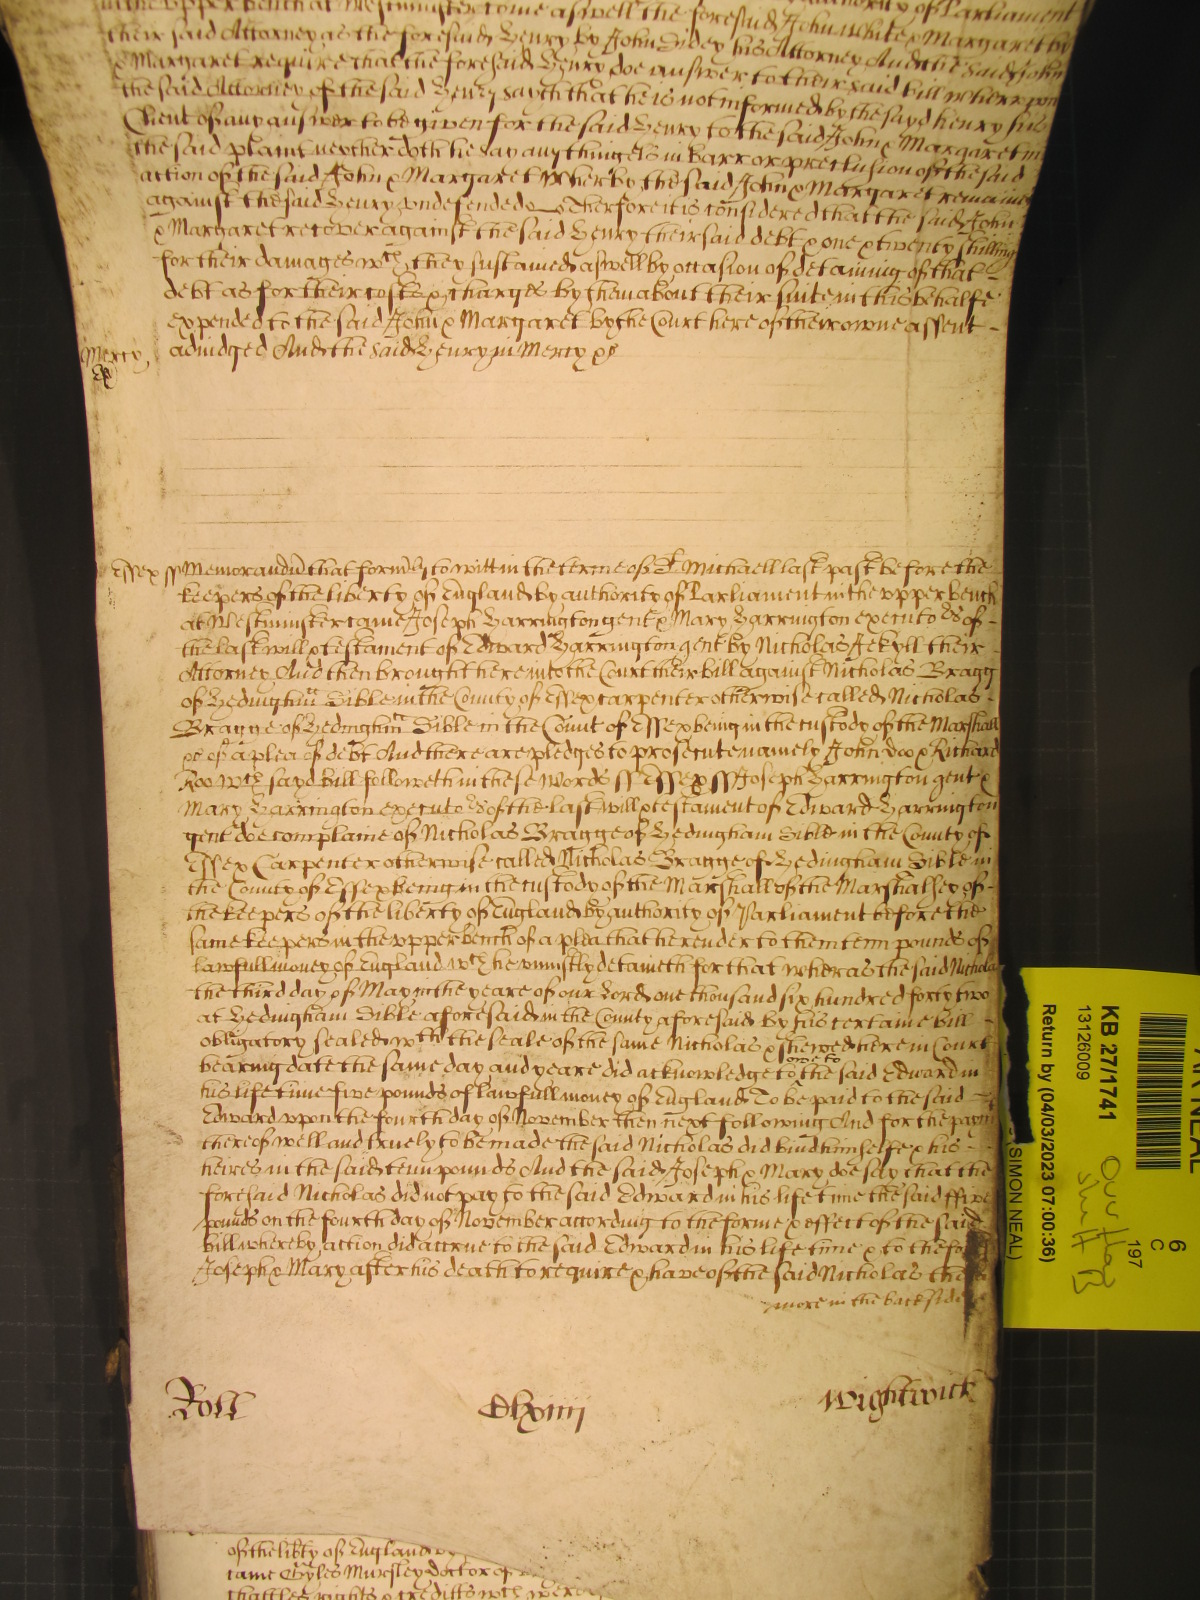 in the upper bench at Westminster come aswell the foresaid John White & Margaret by
their said Attorney as the foresaid Henry by John Sidey his Attorney And the said John
& Margaret require that the foresaid Henry doe answer to their said bill Whereupon
the said Attorney of the said Henry sayth that he is not informed by the sayd Henry his
Client of any answer to be given for the said Henry to the said John & Margaret in
the said plaint neyther doth he say any thing els in barr or preclusion of the said
action of the said John & Margaret Wherby the said John & Margaret remaine
against the said Henry undefended Therfore it is considered that the said John
& Margaret recover against the said Henry their said debt & one & twenty shillings
for their damages wch they sustained aswell by occasion of detaining of that
debt as for their costs & charges by them about their suite in this behalfe
expended to the said John & Margaret by the Court here of their owne assent
Mercy adiudged And the said Henry in Mercy &c
Essex ss Memorandum that formerly to witt in the terme of St Michaell last past before the
keepers of the liberty of England by authority of Parliament in the upper bench
at Westminster came Joseph Harrington gent & Mary Harrington executors of
the last will & testament of Edward Harrington gent by Nicholas Jekyll their
Attorney And then brought here into the Court their bill against Nicholas Bragg
of Hedingham Sible in the County of Essex carpenter otherwise called Nicholas
Bragge of Hedingham Sible in the Count of Essex being in the custody of the Marshall
&c of a plea of debt And there are pledges to prosecute namely John Doo & Richard
Roo wch sayd bill followeth in these words ss Essex ss Joseph Harrington gent &
Mary Harrington executors of the last will & testament of Edward Harrington
gent doe complaine of Nicholas Bragge of Hedingham Sible in the County of
Essex Carpenter otherwise called Nicholas Bragge of Hedingham Sible in
the County of Essex being in the custody of the Marshall of the Marshalsey of
the keepers of the liberty of England by authority of Parliament before the
same keepers in the upper bench of a plea that he render to them tenn pounds of
lawfull money of England wch he uniustly detaineth for that wheras the said Nicholas
the third day of May in the yeare of our Lord one thousand six hundred forty two
at Hedingham Sible aforesaid in the County aforesaid by his certaine bill
obligatory sealed wth the seale of the same Nicholas & shewed here in Court
bearing date the same day and yeare did acknowledge to owe to the said Edward in
his life time five pounds of lawfull money of England To be paid to the said
Edward upon the fourth day of November then next following And for the paymt
thereof well and truely to be made the said Nicholas did bind himselfe & his
heires in the said tenn pounds And the said Joseph & Mary doe say that the
foresaid Nicholas did not pay to the said Edward in his life time the said ffive
pounds on the fourth day of November according to the forme & effect of the said
bill whereby action did accrue to the said Edward in his life time & to the
Joseph & Mary after his death to require & have of the said Nicholas the
more in the back side
Roll Clxiiij Wightwick
of the libty of England
came Gyles Mursley doctor of
chattles rights & creditts wch were
KB 27/1741
13126009
Return by (04/03/2023 07:00:36)
(SIMON NEAL)
6
C
197